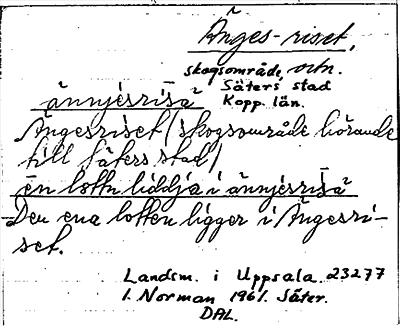 Änges-riset,
skogsområde, ortn.
Säters stad
Kopp. län.
ännjesrisä
Ängesriset (skogsområde hörande
till Säters stad)
en lottn liddja i ännjesrisä
Den ena lotten ligger i Ängesri-
set.
Landsm. i Uppsala 23277
I. Norman 1961. Säter.
DAL.